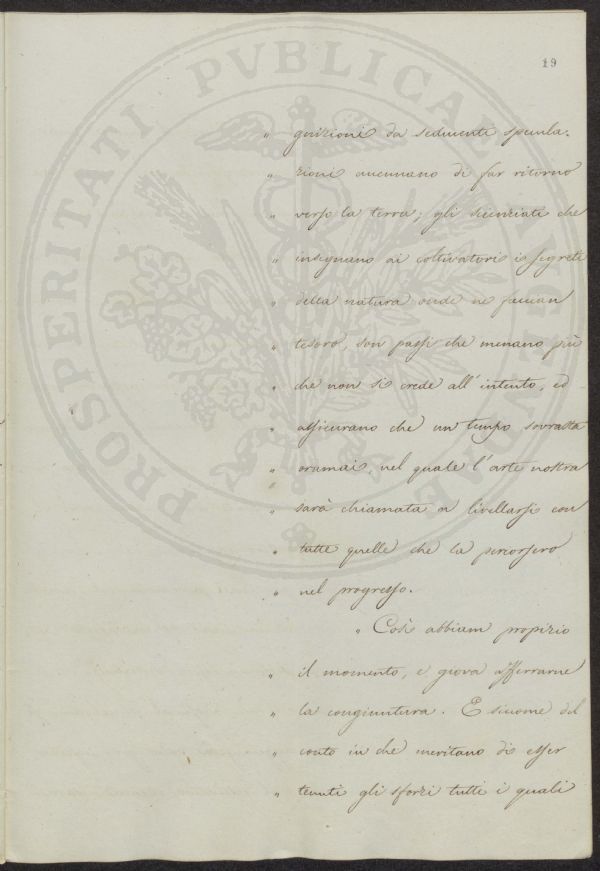 19
" guizioni da seducenti specula-
" zioni accennano di far ritorno
" verso la terra; gli scienziati che
" insegnano ai coltivatori i segreti
" della natura onde ne faccian
" tesoro, son passi che menano più
" che non si crede all'intento, ed
" assicurano che un tempo sovrasta
" oramai, nel quale l'arte nostra
" sarà chiamata a livellarsi con
" tutte quelle che la percorsero
" nel progresso.
" Così abbiam propizio
" il momento, e giova afferrarne
" la congiuntura. E siccome del
" conto in che meritano di esser
" tenuti gli sforzi tutti i quali
PROSPERITATI PVBLICAE AVGENDAE